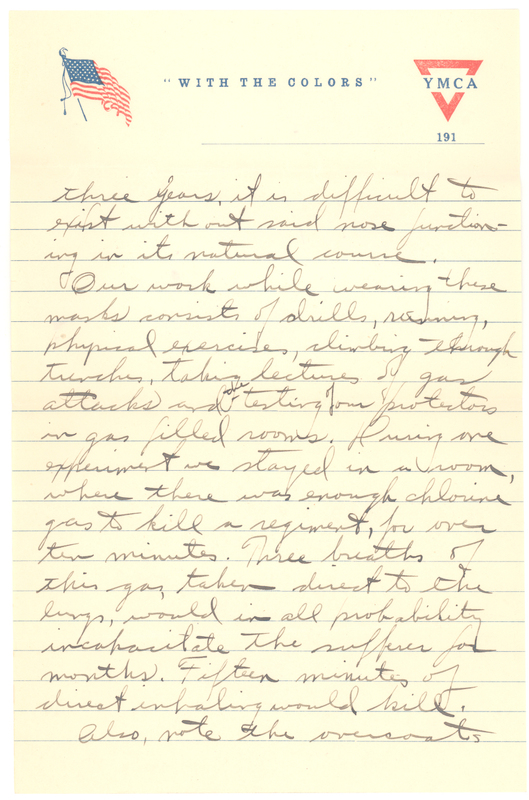 "WITH THE COLORS"
YMCA
191
three years, it is difficult to
exist with out said nose function-
ing in its natural course.
Our work while wearing these
masks consists of drills, running,
physical exercises, climbing through
trenches, taking lectures on gas
attacks and the testing of our protectors
in gas filled rooms. During one
experiment we stayed in a room,
where there was enough chlorine
gas to kill a regiment, for over
ten minutes. Three breaths of
this gas, taken direct to the
lungs, would in all probability
incapacitate the sufferer for
months. Fifteen minutes of
direct inhaling would kill.
Also, note the overcoats